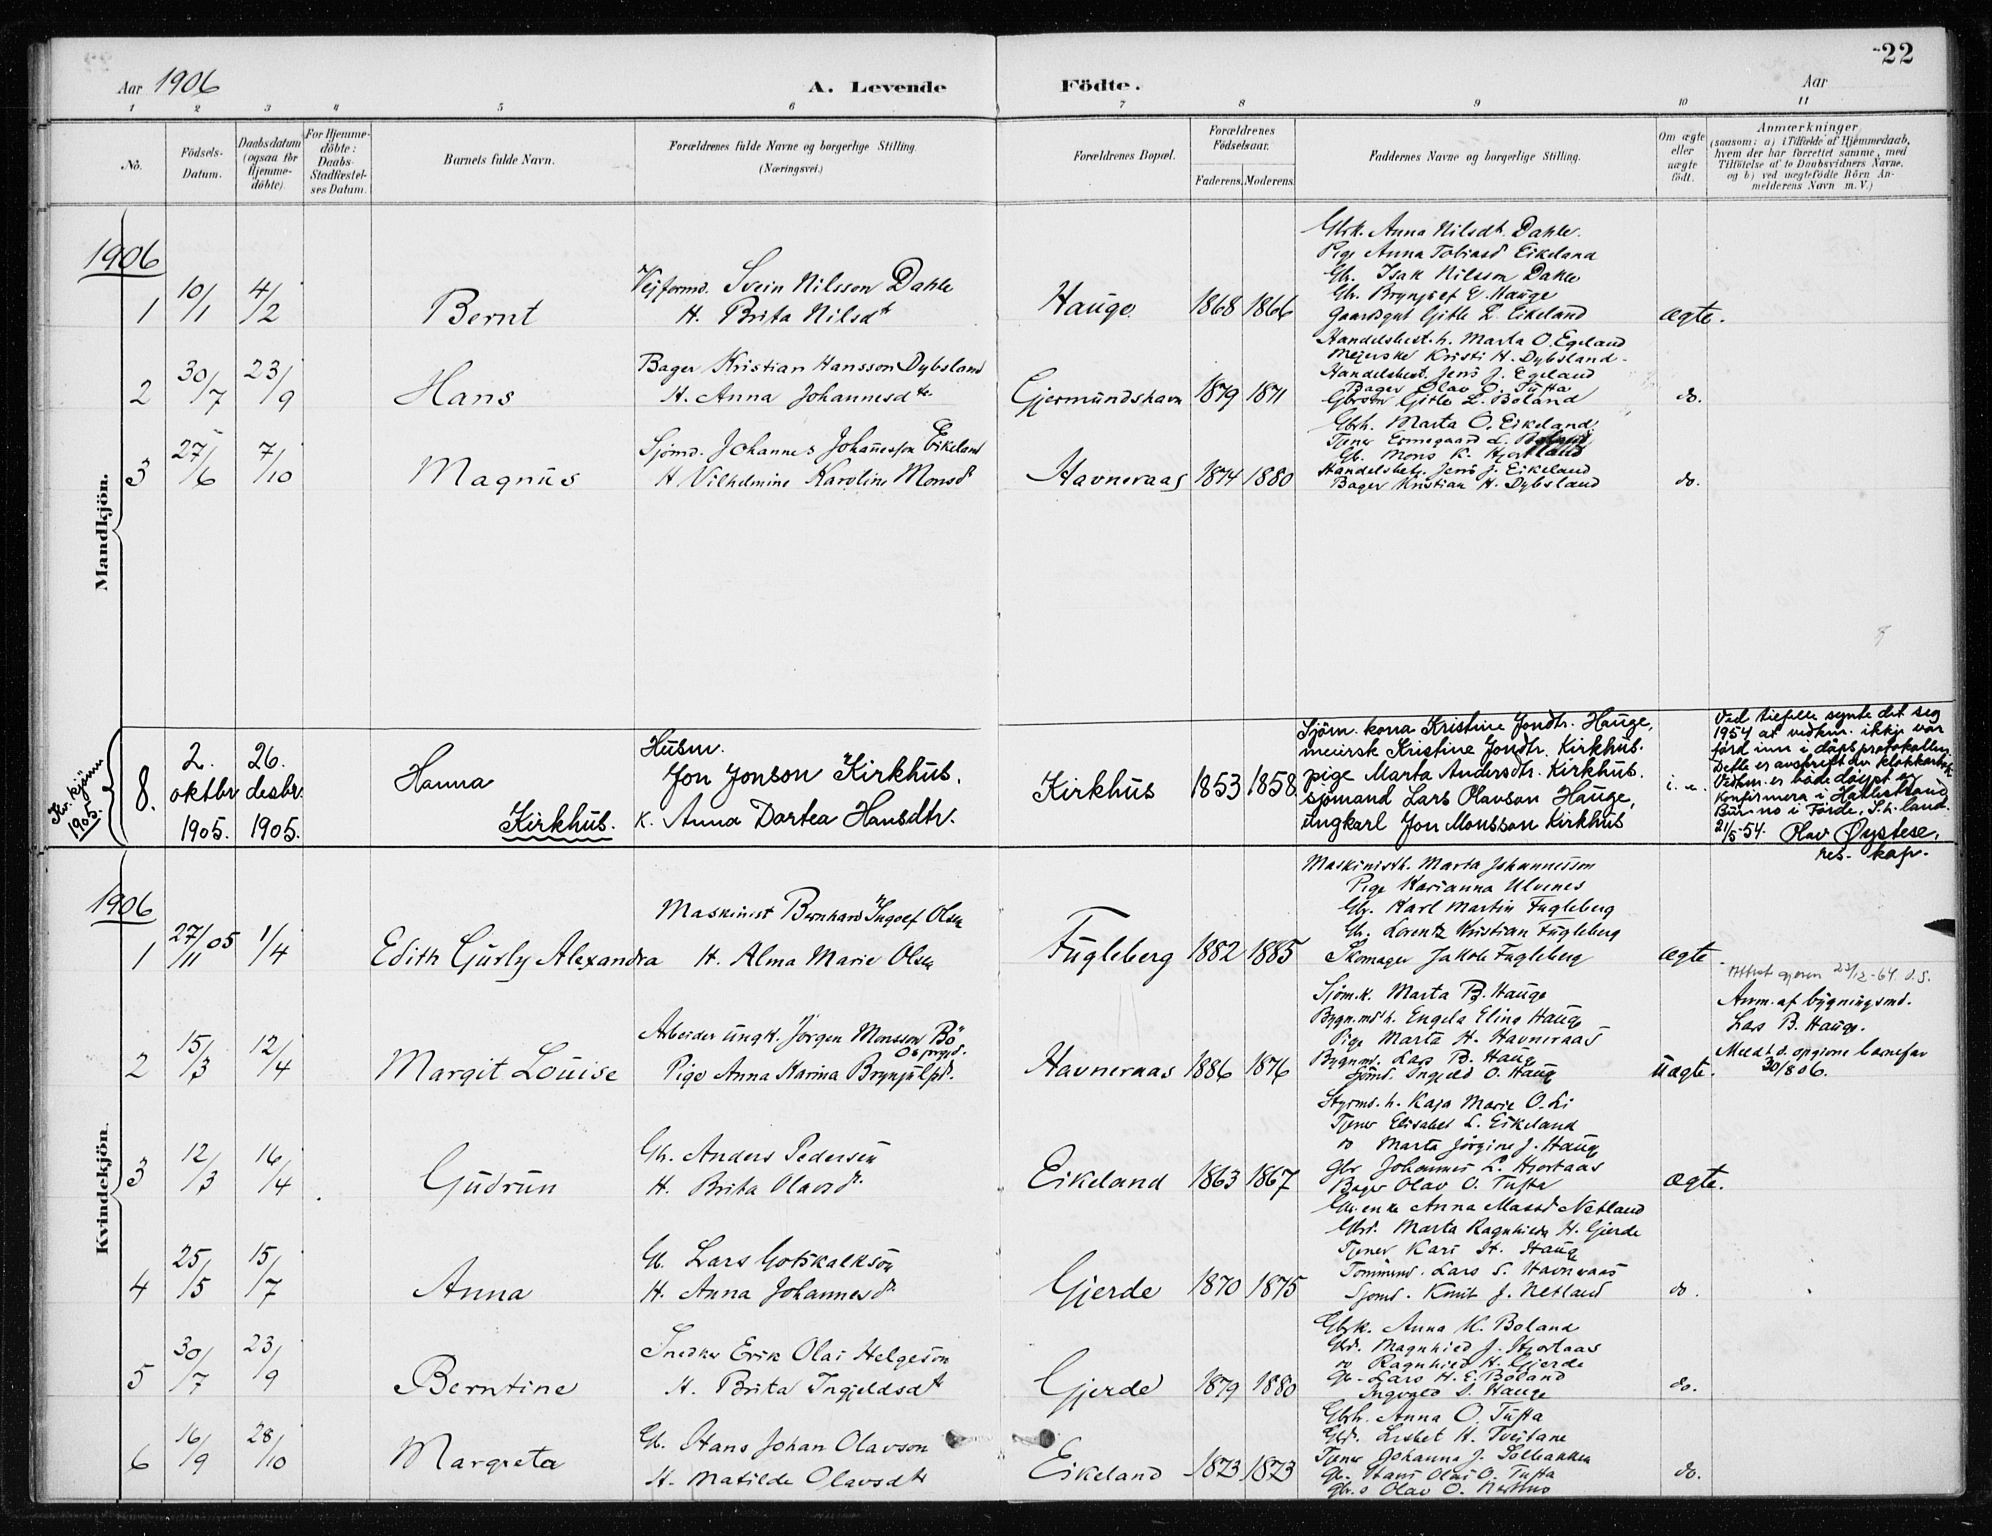 22
Aar 1906 A. Levende Födte. Aar
1 2 3 4 5 6 7 8 9 10 11
No. Födsels-Datum. Daabsdatum (ogsaa for Hjemmedöbte). For Hjemmedöbte: Daabs-Stadfæstelses Datum. Barnets fulde Navn. Forældrenes fulde Navne og borgerlige Stilling. (Næringsvei.) Forældrenes Bopæl. Forældrenes Födselsaar. Faderens. Moderens. Faddernes Navne og borgerlige Stilling. Om ægte eller uægte födt. Anmærkninger (saasom: a) i Tilfælde af Hjemmedaab, hvem der har forrettet samme, med Tilföielse af to Daabsvidners Navne, og b) ved uægtefödte Börn Anmelderens Navn m. V.)
Mandkjön.
1906
Gbrk. Anna Nilsdt. Dahle.
Pige Anna Tobiasd Eikeland
Gb. Isak Nilsson Dahle
Gb. Brynjulf E. Hauge
Gaardsgut Gitle L. Eikeland
1 10/1 4/2 Bernt Vejformd. Svein Nilsson Dahle
H. Brita Nilsdt Hauge 1868 1866 ægte.
Handelsbest. h. Marta O. Egeland
Mejerske Kristi H. Dybsland
Handelsbest. Jens J. Egeland
Bager Olav O. Tufta
Gbrsøn Gitle L. Boland
2 30/7 23/9 Hans Bager Kristian Hansson Dybsland
H. Anna Johannesdtr. Gjermundshavn 1879 1871 do.
Gbrh. Marta O. Eikeland
Tjener Ermegaard L. Boland
Gb. Mons K. Hjortland
Handelsbetj. Jens J. Eikeland
Bager Kristian H. Dybsland
3 27/6 7/10 Magnus Sjömd. Johannes Johannesson Eikeland
H. Vilhelmine Karoline Monsdt Havneraas 1874 1880 do.
Kv. kjönn 1905.
8. 2. oktbr 1905. 26. desbr. 1905. Hanna Kirkhus.
Husm.
Jon Jonson Kirkhus.
K. Anna Dortea Hansdtr.
Kirkhus 1853 1858
Sjöm. kona Kristine Jondtr. Hauge,
meiersk Kristine Jondtr. Kirkhus.
pige Marta Andersdtr. Kirkhus.
sjömand Lars Olavson Hauge,
ungkarl Jon Monsson Kirkhus
Ved tilfelle synte det seg
1954 at vedkm. ikkje var
förd inn i dåpsprotokollen
Dette er avskrift av klokkarbok.
Vedkm. er både döypt og
konfirmera i Hatlestrand
Bur no i Förde, S.h.land.
21/5-54. Olav Øystese,
res. kap.
Kvindekjön.
1906
Maskinisth. Marta Johannesson
Pige Karianna Ulvenes
Gbr. Karl Martin Fugleberg
Gb. Lorentz Kristian Fugleberg
Skomager Jakob Fugleberg
1 27/11 05 1/4 Edith Gurly Alexandra Maskinist Bernhard Ingolf Olsen
H. Alma Marie Olsen Fugleberg 1882 1885 ægte
Sjöm.k. Marta B. Hauge
Bygn.md h. Engela Elina Hauge
Pige Marta H. Havneraas
Bygnmd. Lars B. Hauge
Sjömd. Ingjeld O. Hauge
2 15/3 12/4 Margit Louise Arbeider ungk. Jörgen Monsson Bö
Pige Anna Karina Brynjulfsdt. Havneraas 1886 1876 uægte.
Anm. af bygningsmd.
Lars B. Hauge.
30/8 06.
Styrmd. h. Kaja Marie O. Li
Tjener Elisabet L. Eikeland
do Marta Jörgine J. Hauge
Gbr Johannes L. Hjortaas
Bager Olav O. Tufta
3 12/3 16/4 Gudrun Gb. Anders Pedersen
H. Brita Olavsdtr. Eikeland 1863 1867 ægte.
Gb. enke Anna Massd Netland
Gbd. Marta Ragnhilda H. Gjerde
Tjener Kari H. Hauge
Tömmermd. Lars S. Havneraas
Sjömd. Knut J. Netland
4 25/5 15/7 Anna Gb. Lars Gotskalkson
H. Anna Johannesdtr. Gjerde 1870 1875 do.
Gbrk. Anna K. Boland
Gbd. Magnhild J. Hjortaas
do Ragnhild H. Gjerde
Gb. Lars H. E. Boland
Ingvald S. Hauge
5 30/7 23/9 Berntine Snedker Erik Olai Helgeson
H. Brita Ingjeldsdt Gjerde 1879 1880 do.
Gbrh. Anna O. Tufta
Gbd. Lisbet H. Tveitane
Tjener Johanna J. Solbakken
Gb. Hans Olai O. Tufta
Gbr.s Olav O. Nesthus
6 16/9 28/10 Margreta Gb. Hans Johan Olavson
H. Matilde Olavsdt Eikeland 1873 1873 do.